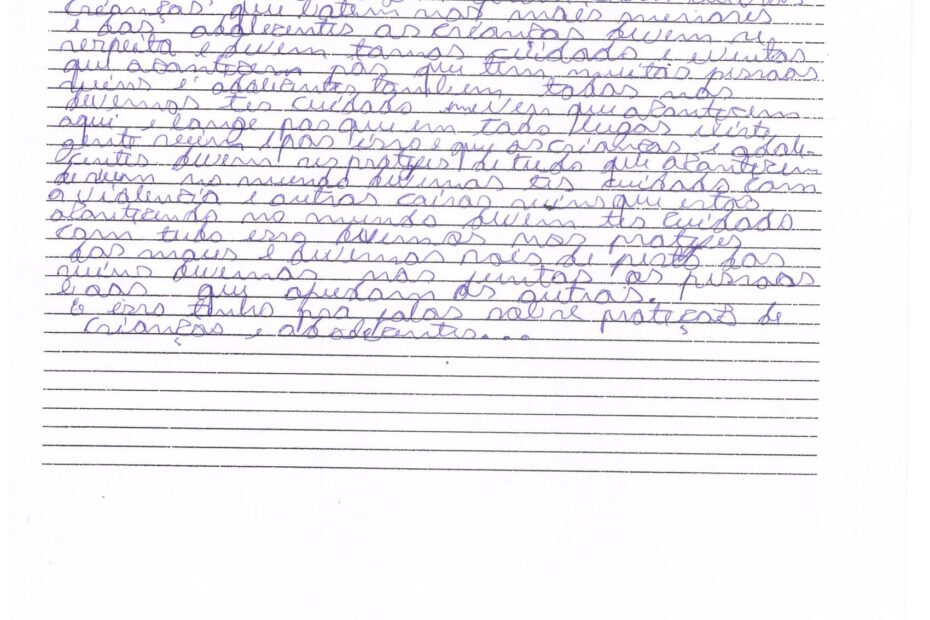 crianças que batem nos mais menores
e das adolecentes as crianças devem se
respeita e devem tomas cuidado e evitas
que acontecem pas que tem muitas pessoas
ruins e adolecentes tambem todas nos
devemos tes cuidado que acontecem
aqui e longe pas que em todo lugas existe
gente e pas isso e que as crianças e adole-
centes devem se proteges de tudo que acontecem
devem no mundo devemos tes cuidado com
a violencia e outras coisas ruins que estas
acontecendo no mundo devem tes cuidado
com tudo esso devemos nos proteges
das maus e devemos de perto das
ruins devemos nos juntas as pessoas
boas que ajudam os outras.
e esso tinho pra falas sobre proteçaõ de
crianças e adodecentes...